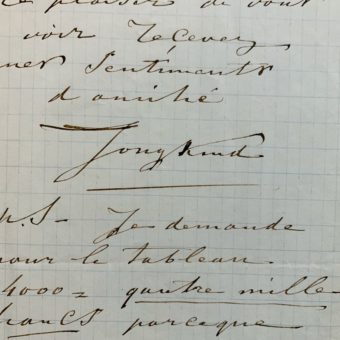 le plaisir de vous
voir Recevez
mes Sentiments
d amitié
Jongkind
P.S - Je demande
pour le tableau
4000 = quatre mille
francs parceque